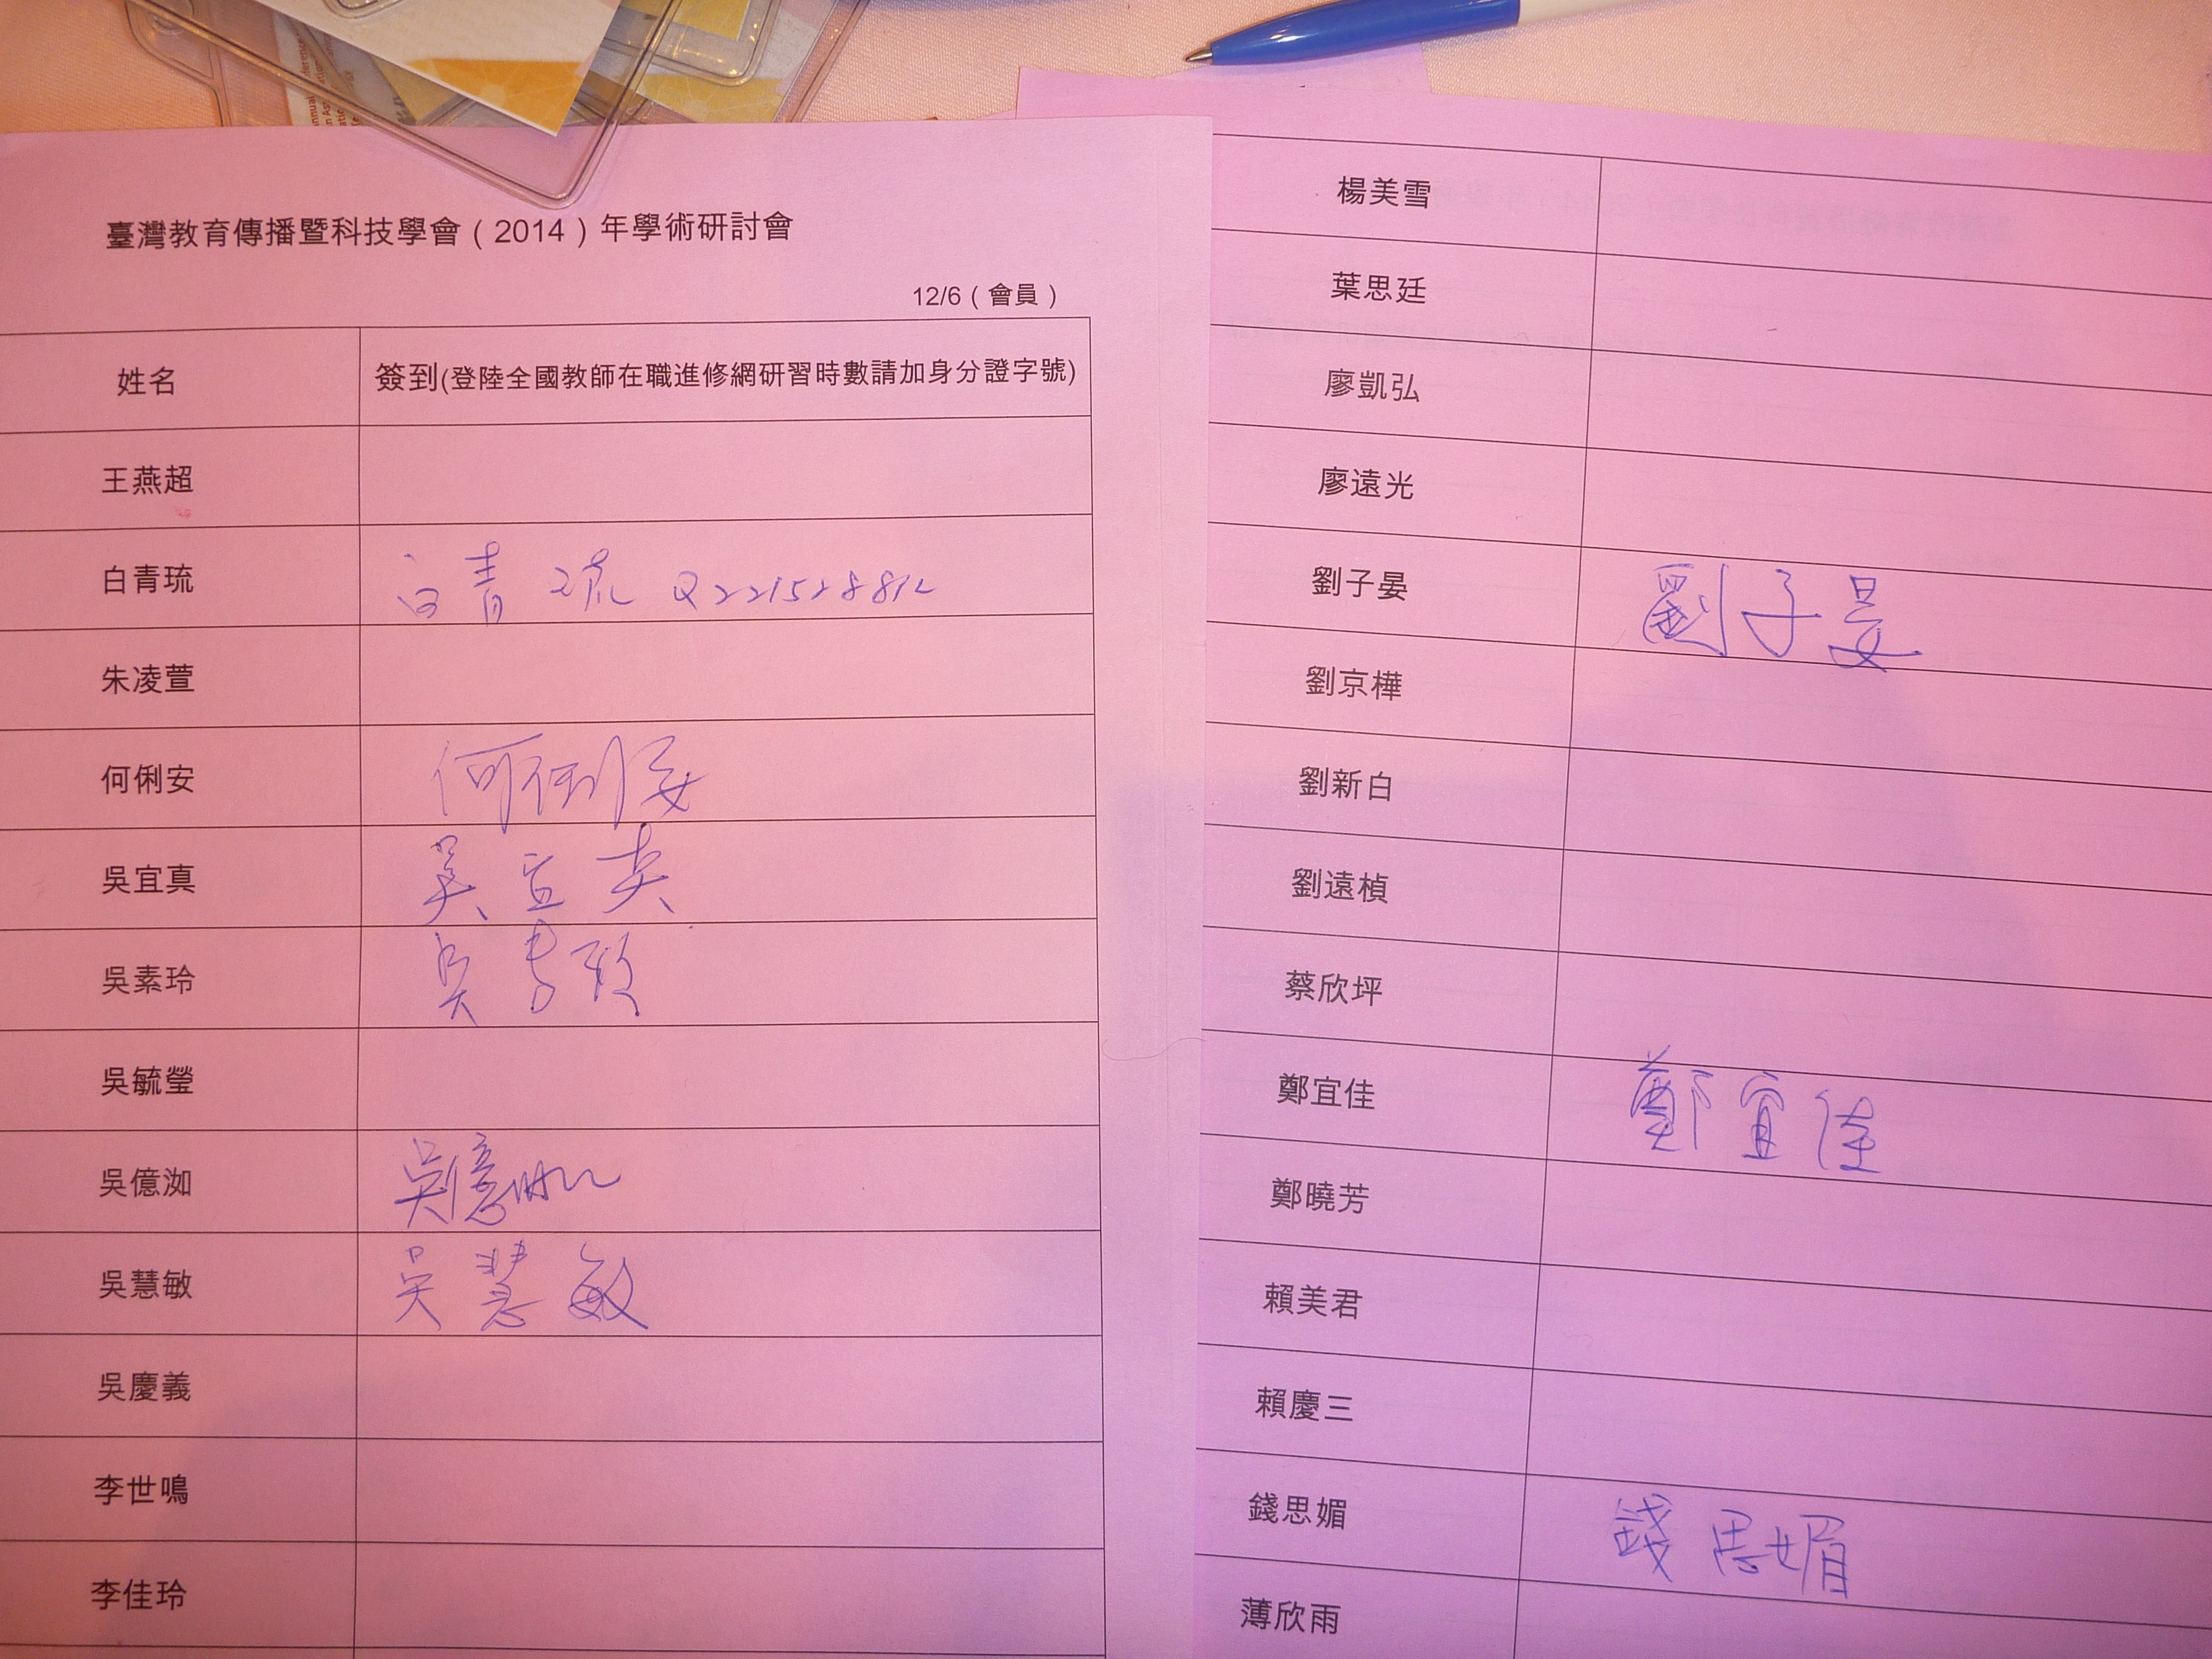 臺灣教育傳播暨科技學會（2014）年學術研討會
12/6（會員）
姓名 簽到(登陸全國教師在職進修網研習時數請加身分證字號)
王燕超
白青琉 白青琉 Q221528812
朱凌萱
何俐安 何俐安
吳宜真 吳宜真
吳素玲 吳素玲
吳毓瑩
吳億洳 吳億洳
吳慧敏 吳慧敏
吳慶義
李世鳴
李佳玲
楊美雪
葉思廷
廖凱弘
廖遠光
劉子晏 劉子晏
劉京樺
劉新白
劉遠楨
蔡欣坪
鄭宜佳 鄭宜佳
鄭曉芳
賴美君
賴慶三
錢思媚 錢思媚
薄欣雨